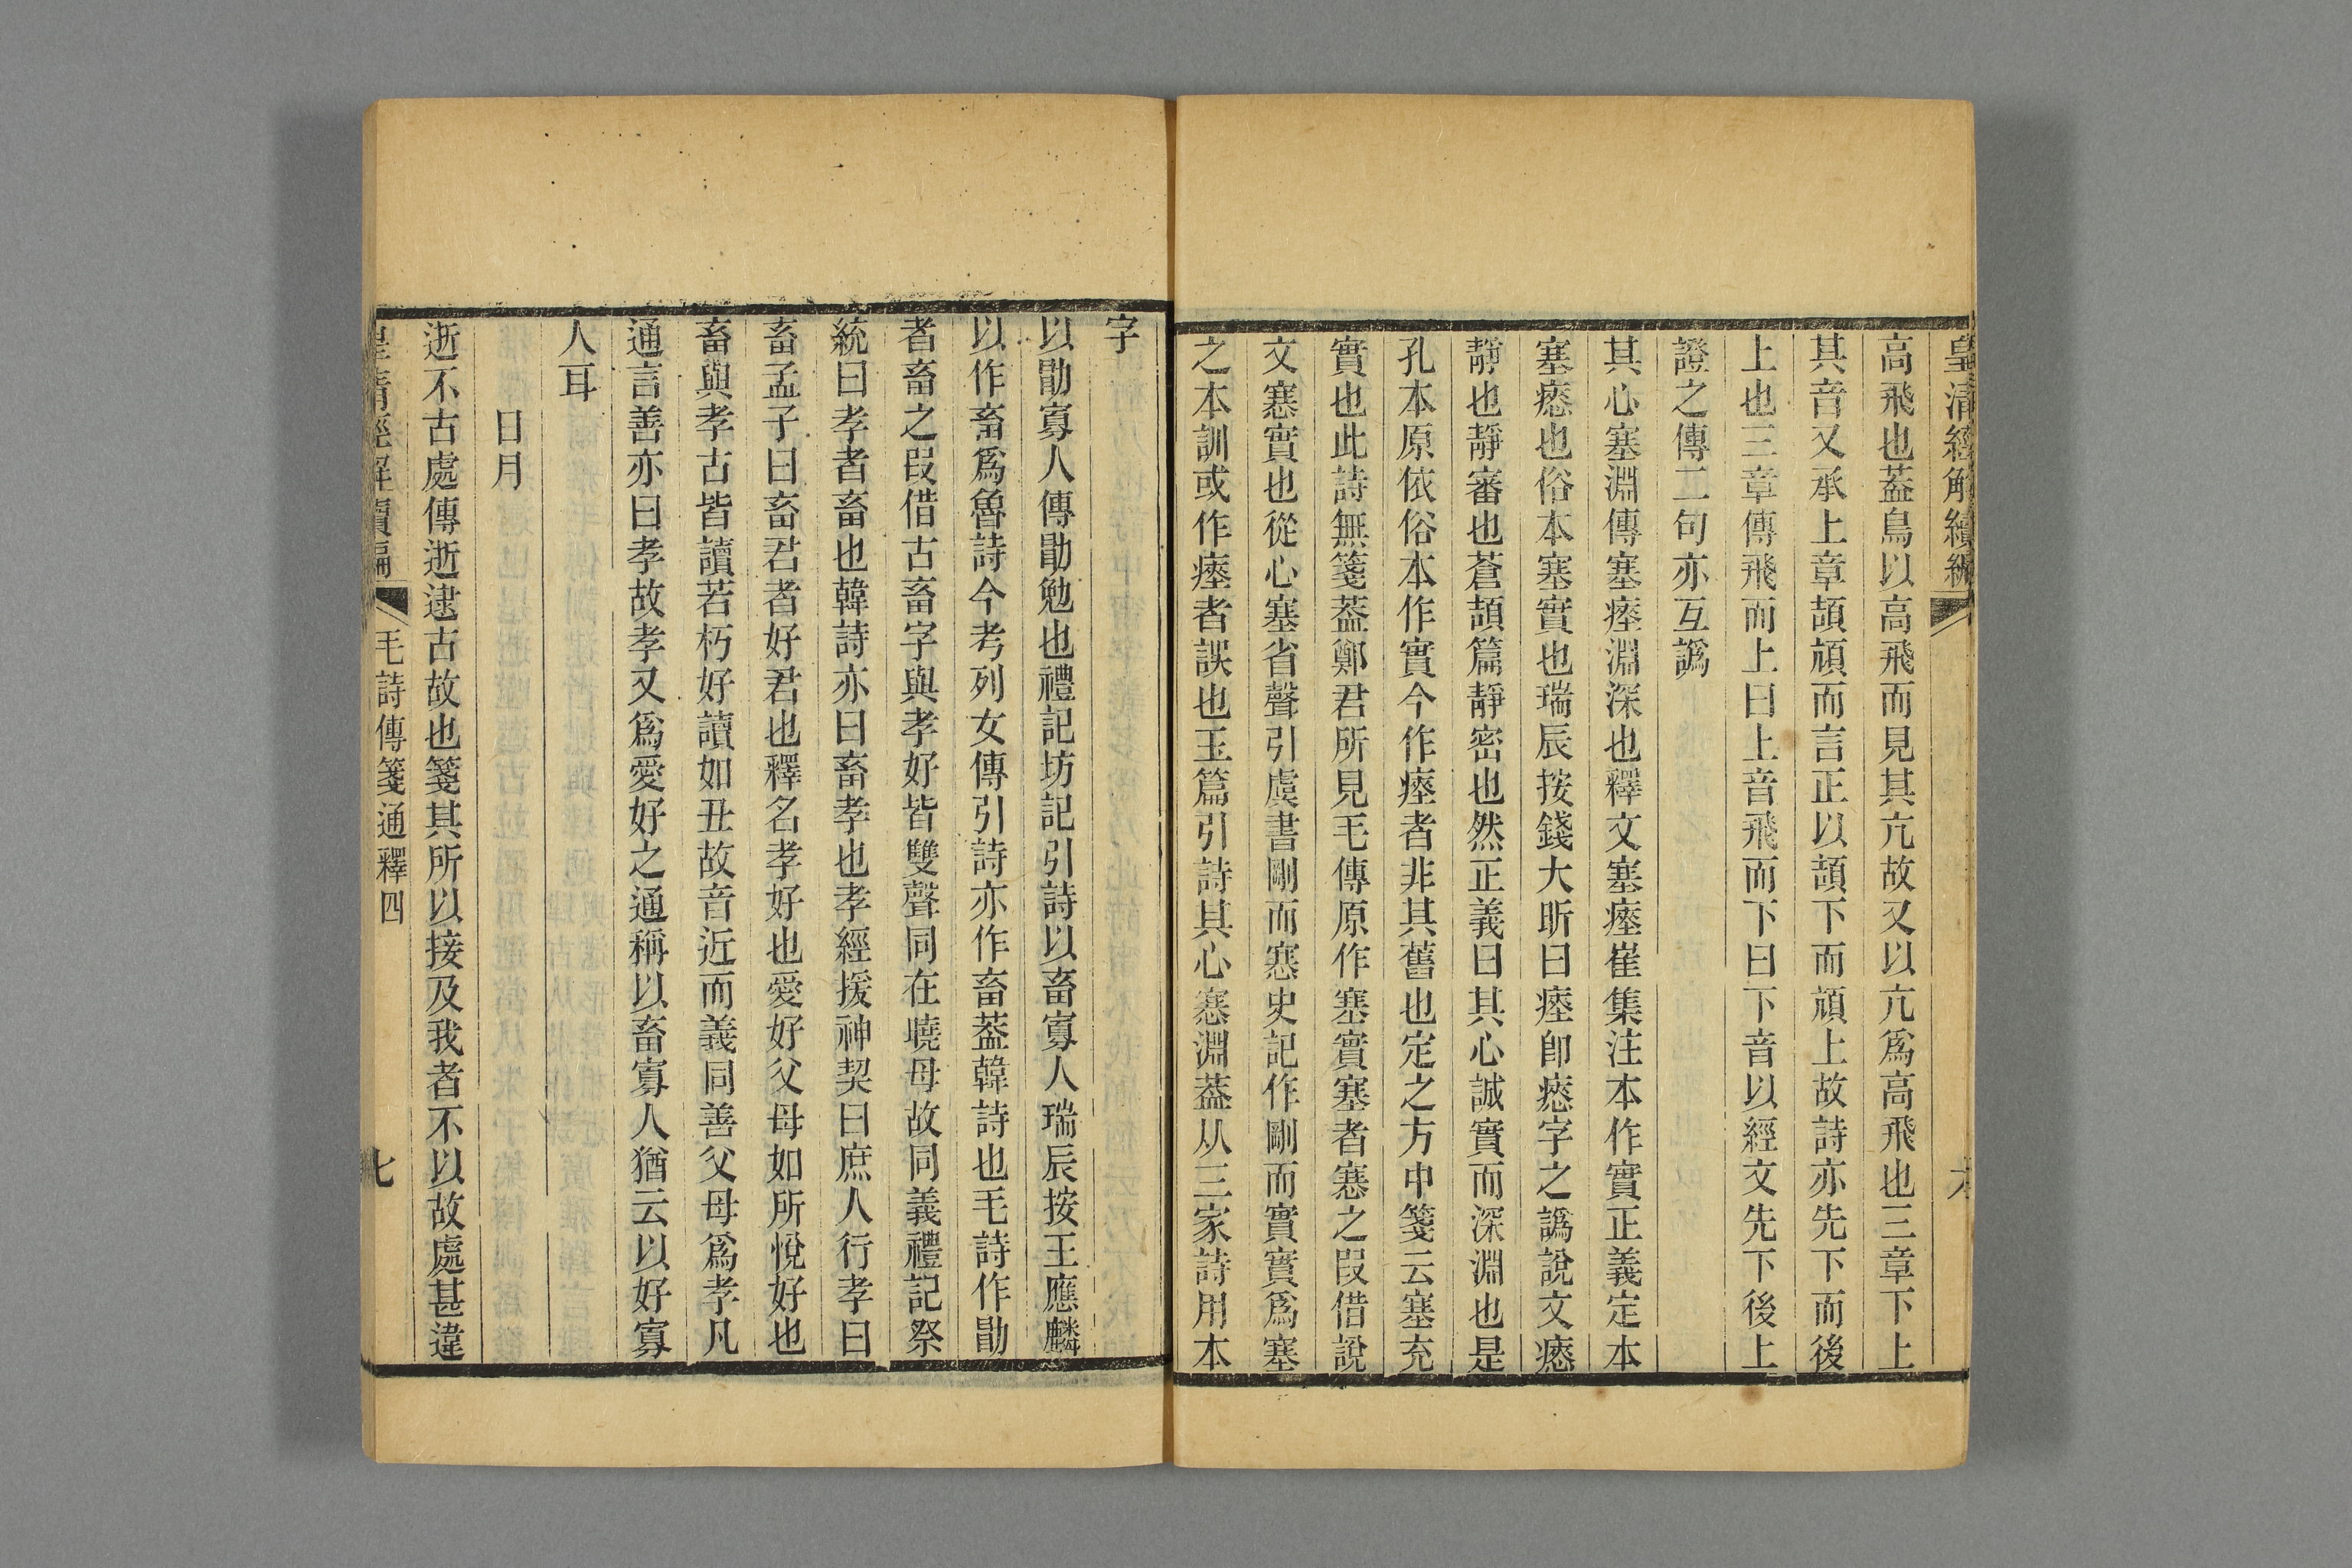 皇清經解續編
高飛也蓋鳥以高飛而見其亢故又以亢爲高飛也三章下上
其音又承上章頡頏而言正以頡下而頏上故詩亦先下而後
上也三章傳飛而上曰上音飛而下曰下音以經文先下後上
證之傳二句亦互譌
其心塞淵傳塞瘞淵深也釋文塞瘞崔集注本作實正義定本
塞瘱也俗本塞實也瑞辰按錢大昕曰瘞卽瘱字之譌說文瘱
靜也靜審也蒼頡篇靜密也然正義曰其心誠實而深淵也是
孔本原依俗本作實今作瘞者非其舊也定之方中箋云塞充
實也此詩無箋葢鄭君所見毛傳原作塞實塞者㥶之叚借說
文㥶實也從心塞省聲引虞書剛而㥶史記作剛而實實爲塞
之本訓或作瘞者誤也玉篇引詩其心㥶淵葢从三家詩用本
字
以勖寡人傳勖勉也禮記坊記引詩以畜寡人瑞辰按王應麟
以作畜爲魯詩今考列女傳引詩亦作畜葢韓詩也毛詩作勖
者畜之叚借古畜字與孝好皆雙聲同在曉母故同義禮記祭
統曰孝者畜也韓詩亦曰畜孝也孝經援神契曰庶人行孝曰
畜孟子曰畜君者好君也釋名孝好也愛好父母如所悅好也
畜與孝古皆讀若朽好讀如丑故音近而義同善父母爲孝凡
通言善亦曰孝故孝又爲愛好之通稱以畜寡人猶云以好寡
人耳
日月
逝不古處傳逝逮古故也箋其所以接及我者不以故處甚違
皇清經解續編
毛詩傳箋通釋四
七